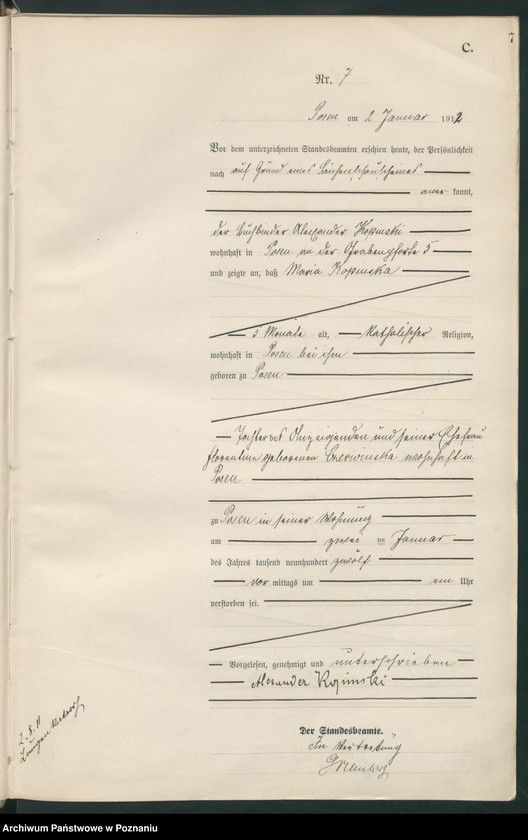 7
C.
Nr. 7
Posen am 2 Januar 1912
Vor dem unterzeichneten Standesbeamten erschien heute, der Persönlichkeit
nach auf Grund eines Leichenschauscheines
aner kannt,
der Buchbinder Alexander
wohnhaft in Posen an der Grabenpforte 5
und zeigte an, daß Maria
3 Monate alt, katholischer Religion,
wohnhaft in Posen bei ihm
geboren zu Posen
Tochter des Anzeigenden und seiner Ehefrau
Florentina geborenen Czerwinska wohnhaft in
Posen
zu Posen in seiner Wohnung
am zwei ten Januar
des Jahres tausend neunhundert zwölf
vor mittags um ein Uhr
verstorben sei.
Vorgelesen, genehmigt und unterschrieben
Alexander
Der Standesbeamte.
In Vertretung
2. 8. 11
Archiwum Państwowe w Poznaniu